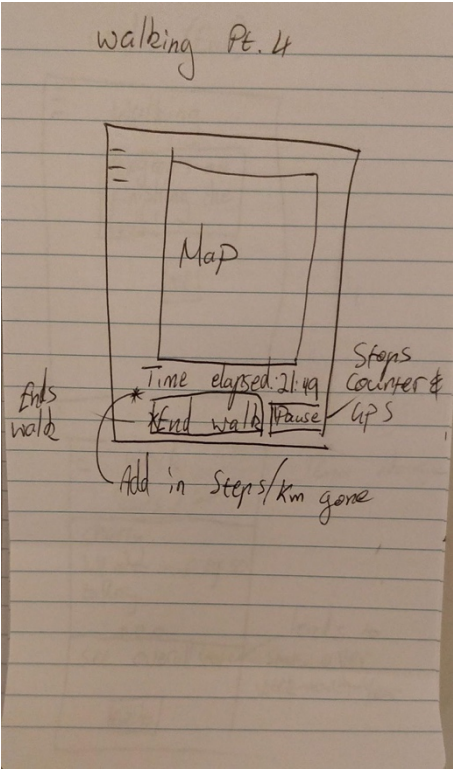 walking Pt. 4
Map
Time elapsed: 21:49
*
*End walk
Pause
Ends
walk
Stops
Counter &
GPS
Add in Steps/km gone